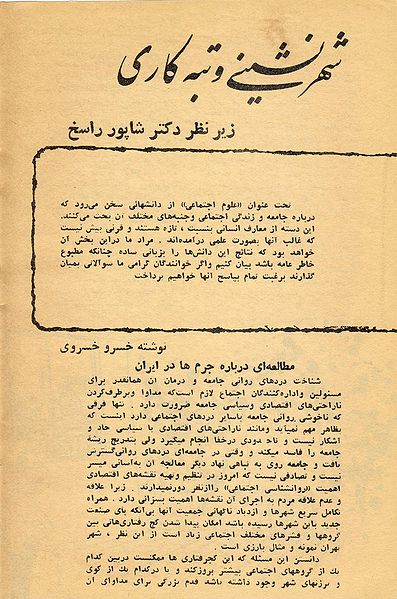 شهرنشینی و تبه کاری
زیر نظر دکتر شاپور راسخ
تحت عنوان «علوم اجتماعی» از دانشهائی سخن می‌رود که
درباره جامعه و زندگی اجتماعی وجنبه‌های مختلف آن بحث می‌کنند.
این دسته از معارف انسانی بنسبت ، تازه هستند و قرنی بیش نیست
که غالب آنها بصورت علمی درآمده‌اند . مراد ما دراین بخش آن
خواهد بود که نتایج این دانش‌ها را بزبانی ساده چنانکه مطبوع
خاطر عامه باشد بیان کنیم واگر خوانندگان گرامی ما سوآلاتی بمیان
گذارند برغبت تمام بپاسخ آنها خواهیم پرداخت
نوشته خسرو خسروی
مطالعه‌ای درباره جرم ها در ایران
شناخت دردهای روانی جامعه و درمان آن همانقدر برای
مسئولین واداره‌کنندگان اجتماع لازم است‌که مداوا وبرطرف‌کردن
ناراحتی‌های اقتصادی وسیاسی جامعه ضرورت دارد . تنها فرقی
که ناخوشی روانی جامعه باسایر دردهای اجتماعی دارد اینست که
بظاهر مهم نمیاید ومانند ناراحتی‌های اقتصادی یا سیاسی حاد و
آشکار نیست و تاحدودی درخفا انجام میگیرد ولی بتدریج ریشه
جامعه را فاسد میکند و وقتی در جامعه‌ای دردهای روانی‌گسترش
یافت و جامعه روی به تباهی نهاد دیگر معالجه آن به‌آسانی میسر
نیست و تصادفی نیست که امروز در تنظیم وتهیه نقشه‌های اقتصادی
اهمیت «روانشناسی اجتماعی» راازنظر دورنمیدارند . زیرا علاقه
و عدم علاقه مردم به اجرای آن نقشه‌ها اهمیت بسزائی دارد . همراه
تکامل سریع شهرها و ازدیاد ناگهانی جمعیت آنها بی‌آنکه پای صنعت
جدید باین شهرها رسیده باشد امکان پیدا شدن کج رفتاری‌هائی بین
گروهها و قشرهای مختلف اجتماعی زیاد است از این نظر ، شهر
تهران نمونه و مثال بارزی است .
دانستن این مسئله که این کجرفتاری ها ممکنست دربین کدام
یك از گروههای اجتماعی بیشتر بروزکند و یا درکدام یك از کوی
و برزنهای شهر وجود داشته باشد قدم بزرگی برای مداوای آن